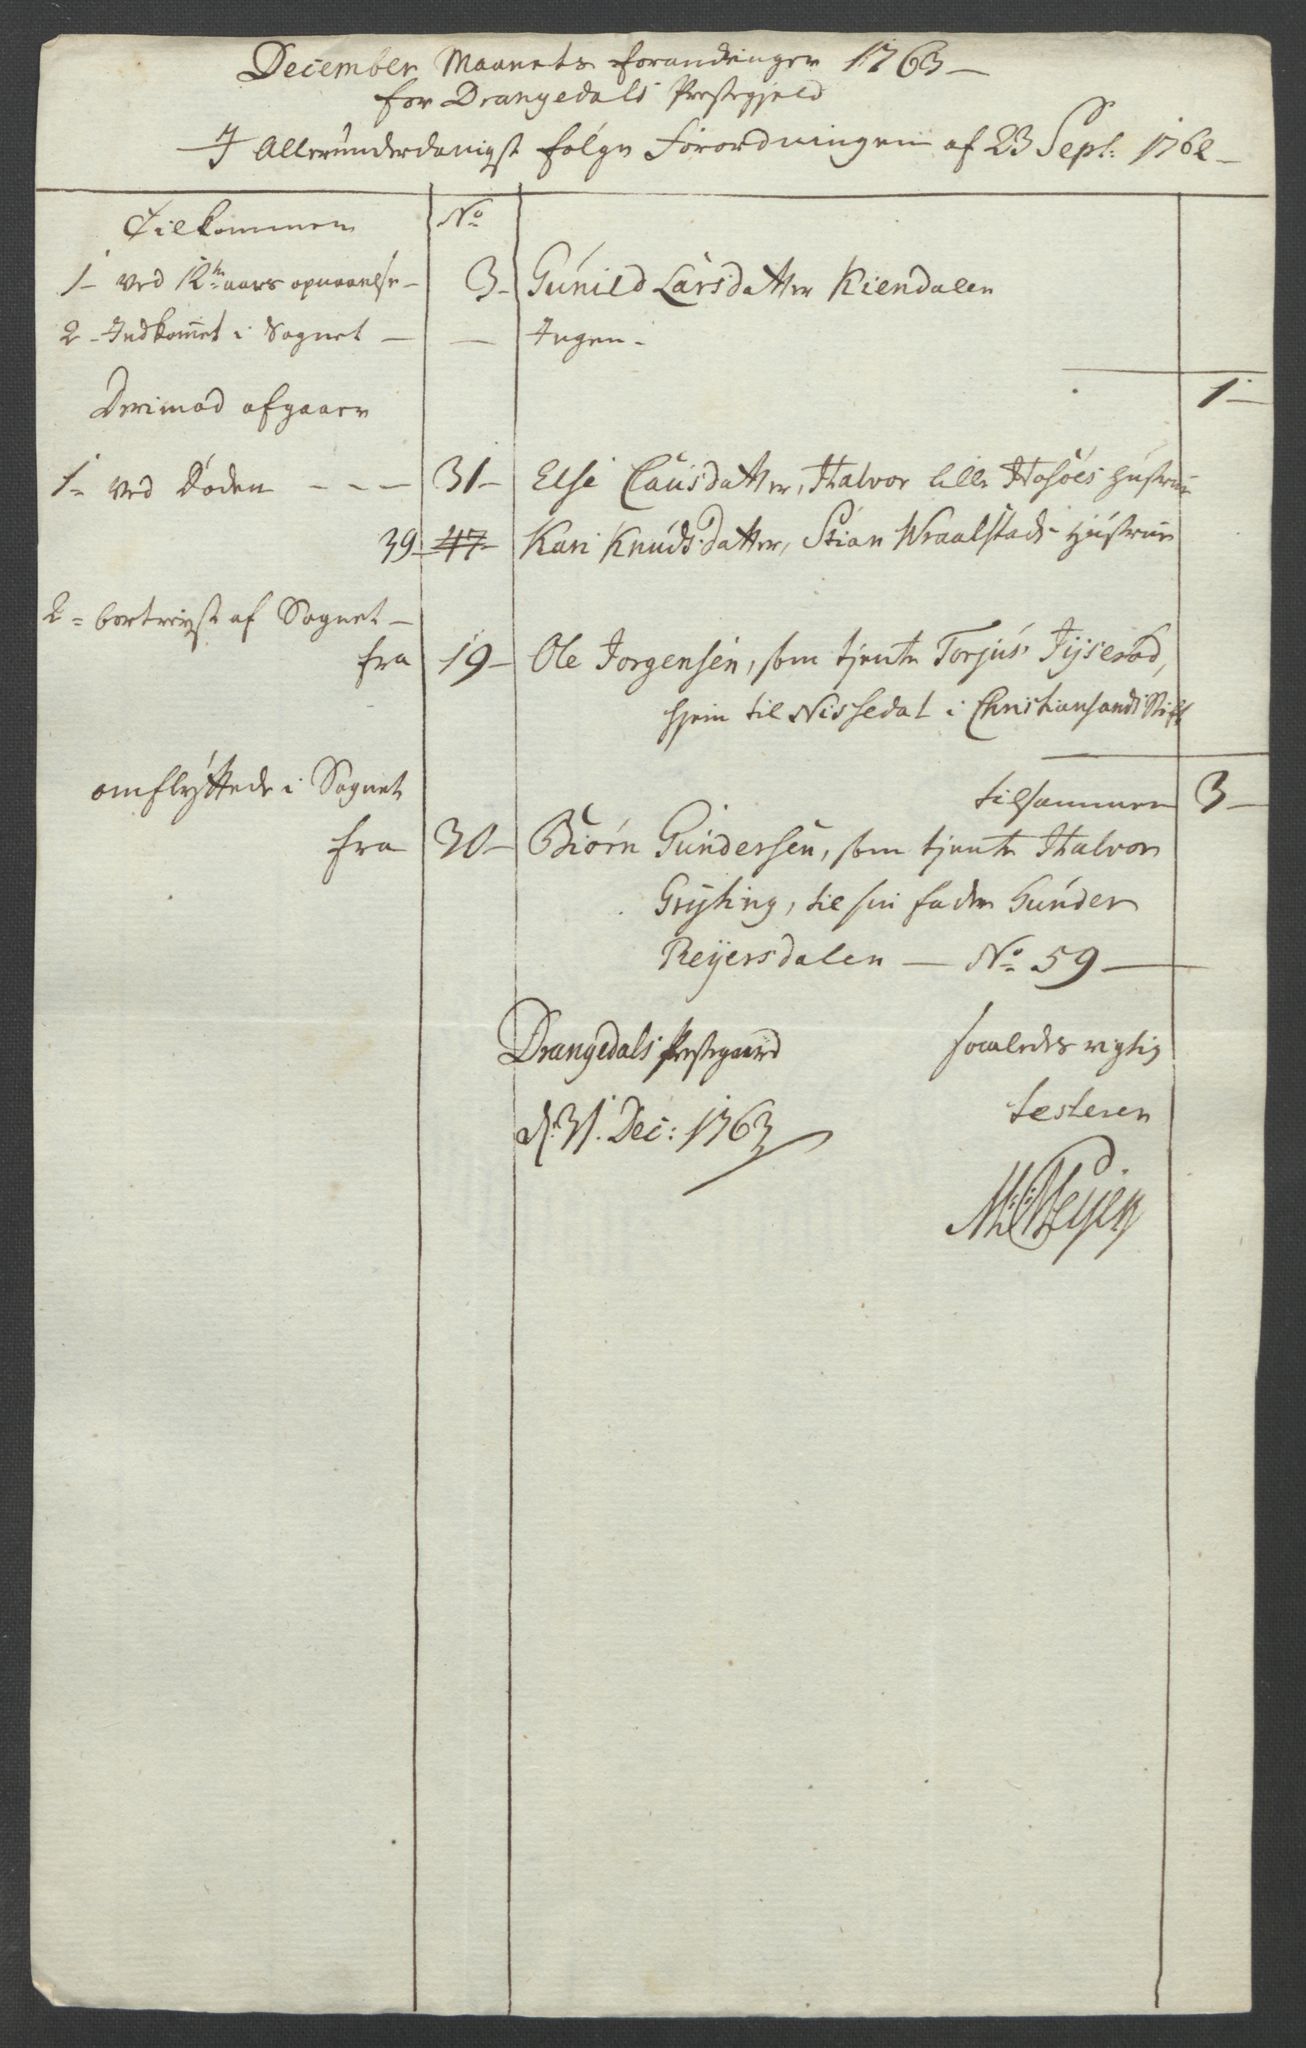 December Maanets forandringer 1763
for Drangedals Prestegield
I Allerunderdanigst følge Forordningen af 23 Sept: 1762
Tilkommen No
1 ved 12te aars opnaaelse 3 Gunild Larsdatter Kiendalen
2 Indkommet i Sognet — Ingen
1
Derimod afgaaer
1 ved Døden - - - 31 Else Clausdatter, Halvor lille Hustrue
39 47 Kari Knudsdatter, Stian Wraalstads Hustrue
2 bortreyst af Sognet
fra 19 Ole Jorgensen, som tjente Torjus
hjem til Nissedal i Christiansands Stift
omflyttede i Sognet tilsammen 3
fra 30 Biørn Gundersen, som tjente Halvor
Gryting, til sin fader Gunder
Reyersdalen — No 59
Drangedals Prestegaard saaledes rigtig
d: 31. Dec: 1763 testerer